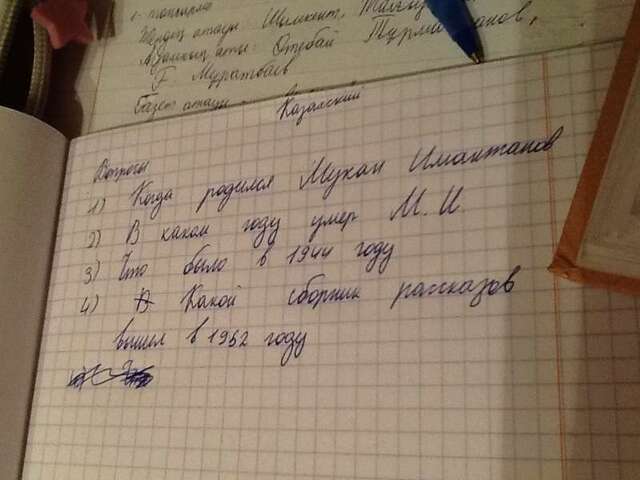 1- тапсырма
Жердің атауы: Шымкент,
Адамның аты: Отебай Турманжанов,
Ғ Мұратбаев
Газет атауы -
Казахский
Вопросы
1) Когда родился Мукан Иманжанов
2) В каком году умер М. И.
3) Что было в 1944 году
4) В Какой сборник рассказов
вышел в 1952 году